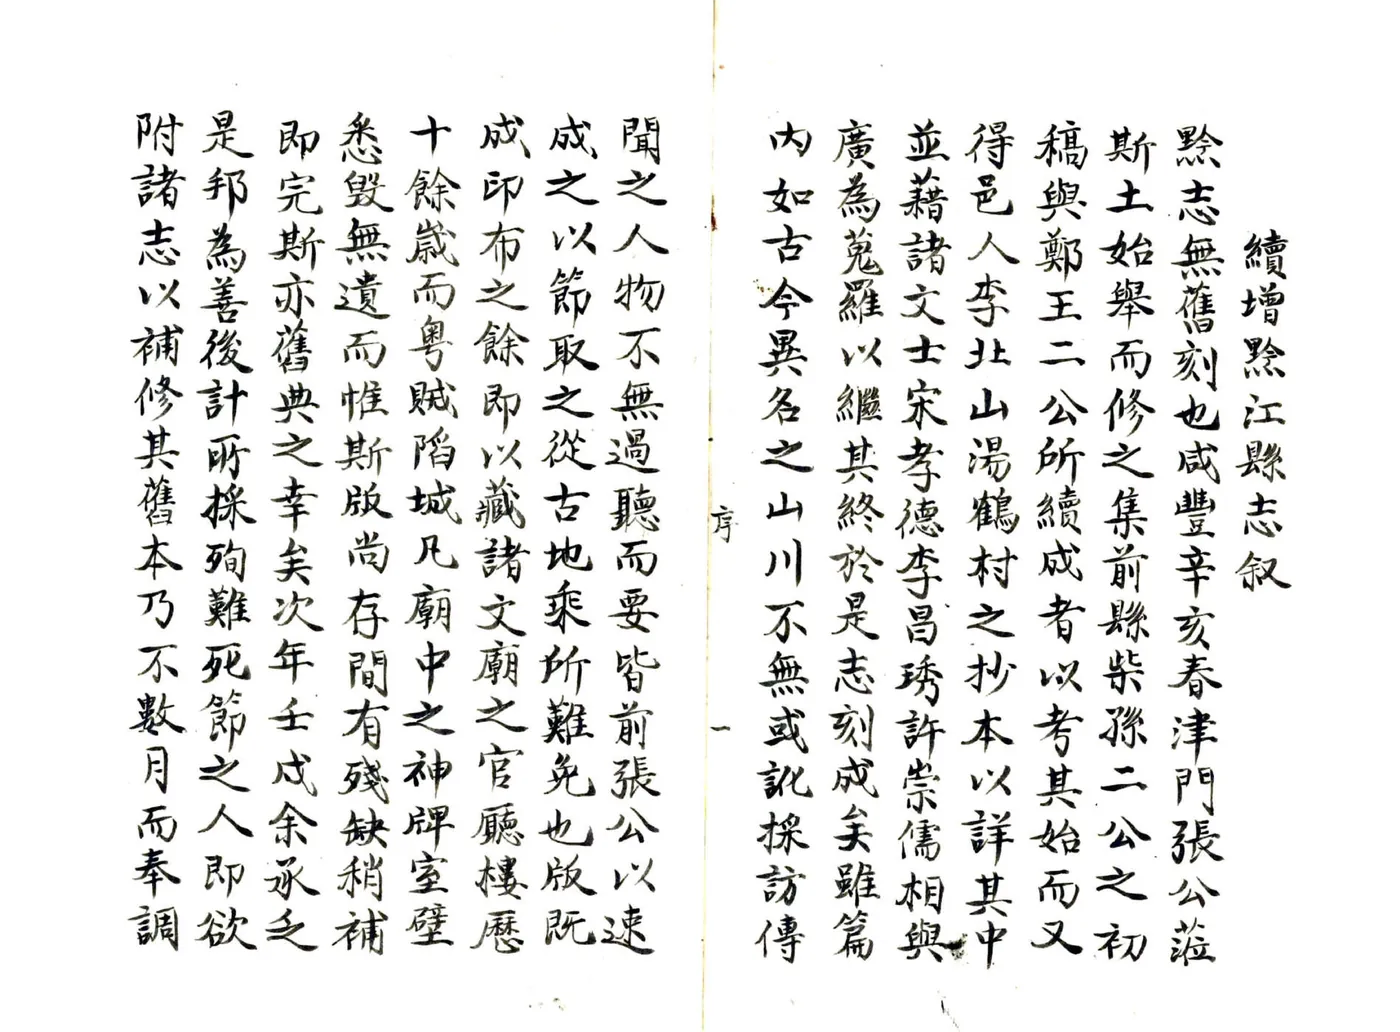 續增黔江縣志叙
黔志無舊刻也咸豐辛亥春津門張公蒞
斯土始舉而修之集前縣柴孫二公之初
稿與鄭王二公所續成者以考其始而又
得邑人李北山湯鶴村之抄本以詳其中
並藉諸文士宋孝德李昌琇許崇儒相與
廣為蒐羅以繼其終於是志刻成矣雖篇
內如古今異名之山川不無或訛採訪傳
序
一
聞之人物不無過聽而要皆前張公以速
成之以節取之從古地乘所難免也版既
成印布之餘即以藏諸文廟之官廳樓歷
十餘歲而粤賊陷城凡廟中之神牌室壁
悉毀無遺而惟斯版尚存間有殘缺稍補
即完斯亦舊典之幸矣次年壬戌余承乏
是邦為善後計所採殉難死節之人即欲
附諸志以補修其舊本乃不數月而奉調